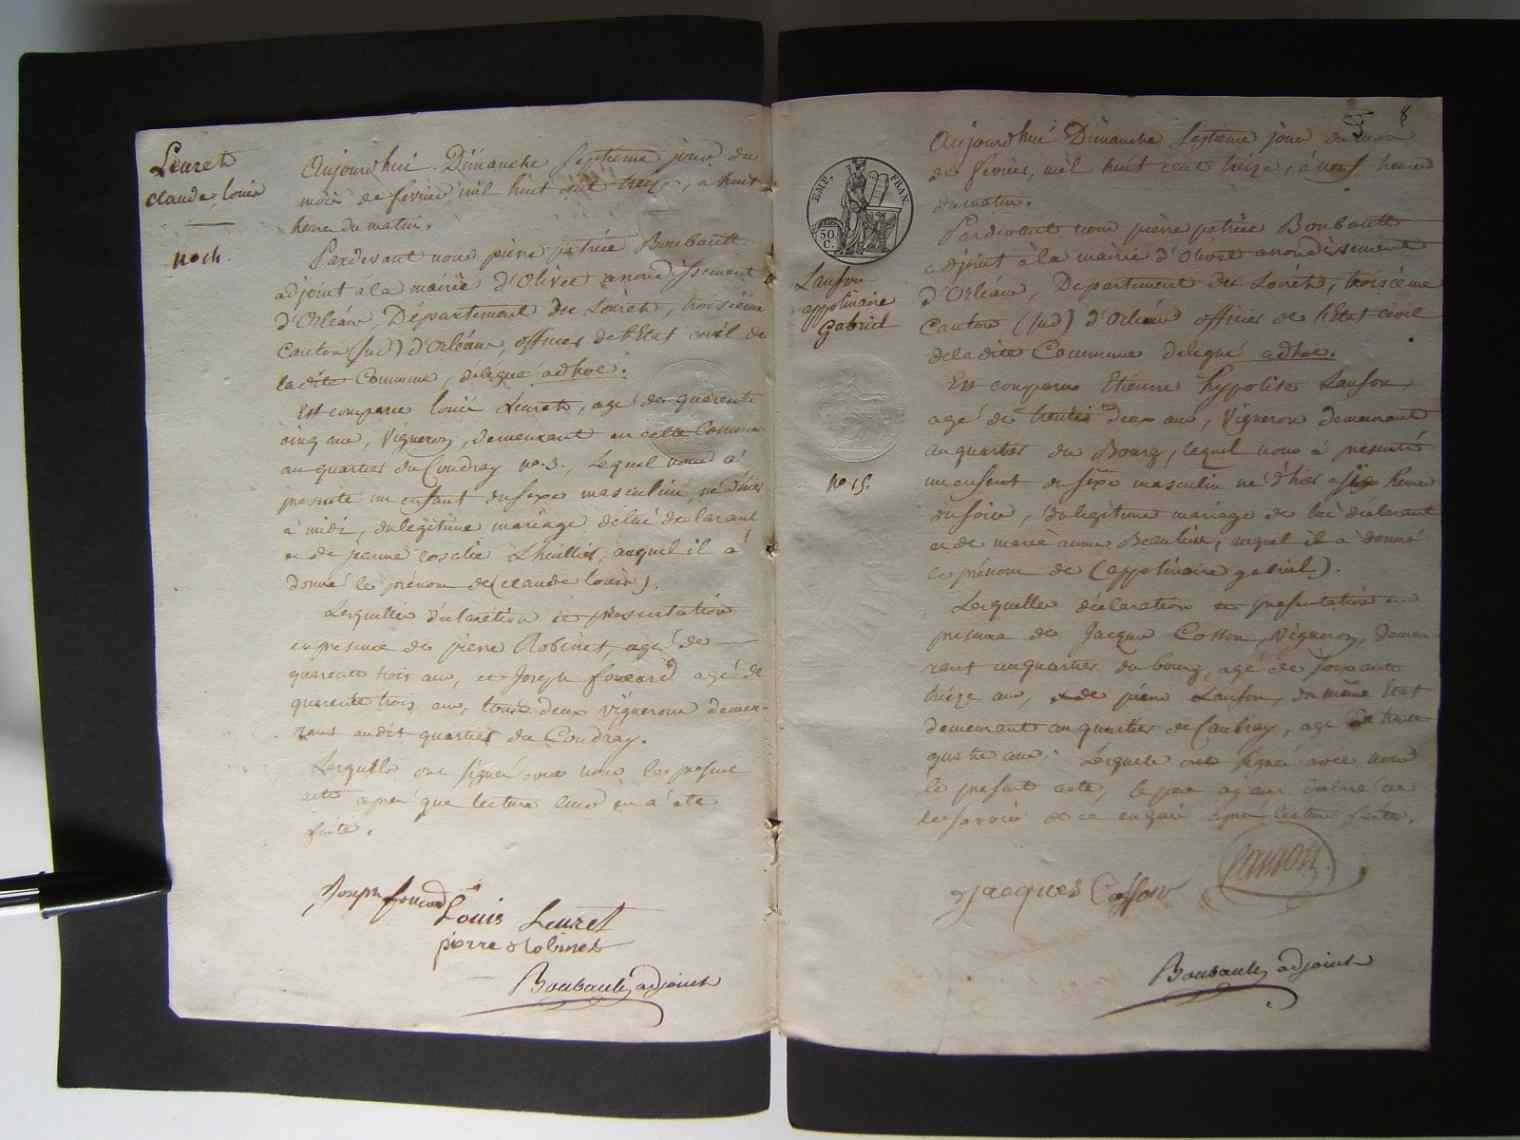 Leuret
claude louis
no 14.
Aujourd'hui Dimanche Septieme jour du
mois de fevrier mil huit cent treize, a huit
heures du matin.
Pardevant nous pierre patrice Boubault
adjoint à la mairie d'Olivet arrondissement
d'Orléans, Département du Loiret, troisieme
Canton (Sud) d'Orléans, officier de l'Etat civil de
la dite Commune, delegué adhoc.
Est comparu louis Leuret, agé de quarente
cinq ans, Vigneron, demeurant en cette Commune
au quartier du Coudray no. 3., Lequel nous a
presenté un enfant du sexe masculin, né d'hier
a midi, du legitime mariage de lui declarant
et de jeanne rosalie Lhuillier, auquel il a
donné le prénom de (claude louis).
Lesquelles déclaration et presentation
en presence de pierre Robinet, agé de
quarente trois ans, et Joseph foucard agé de
quarente trois ans, tous deux vignerons demeu-
rants audit quartier du Coudray.
Lesquels ont signé avec nous le present
acte après que lecture leur en a été
faite.
Joseph foucard
Louis Leuret
pierre Robinet
Boubault adjoint
8
EMP. FRAN.
50 C.
Lanson
appolinaire
Gabriel
no 15.
Aujourd'hui Dimanche Septieme jour du mois
de fevrier, mil huit cent treize, à neuf heures
du matin.
Pardevant nous pierre patrice Boubault
adjoint à la mairie d'Olivet arrondissement
d'Orléans, Departement du Loiret, troisieme
Canton (Sud) d'Orléans officier de l'Etat civil
de la dite Commune delegué adhoc.
Est comparu Etienne hypolite Lanson,
agé de trente deux ans, Vigneron demeurant
au quartier du Bourg, lequel nous à presenté
un enfant du sexe masculin né d'hier a six heures
du soir, du legitime mariage de lui déclarant
et de marie anne Beaulieu, auquel il a donné
le prénom de (appolinaire gabriel).
Lesquelles déclaration et presentation en
presence de Jacques Cosson, Vigneron, demeu-
rant au quartier du bourg, agé de soixante
treize ans, et de pierre Lanson, du même Etat
demeurant au quartier de Caubray, agé de trente
quatre ans. Lesquels ont signé avec nous
le present acte, le pere ayant déclaré ne
le savoir de ce enquis après lecture faite.
Jacques Cosson
Lanson
Boubault adjoint